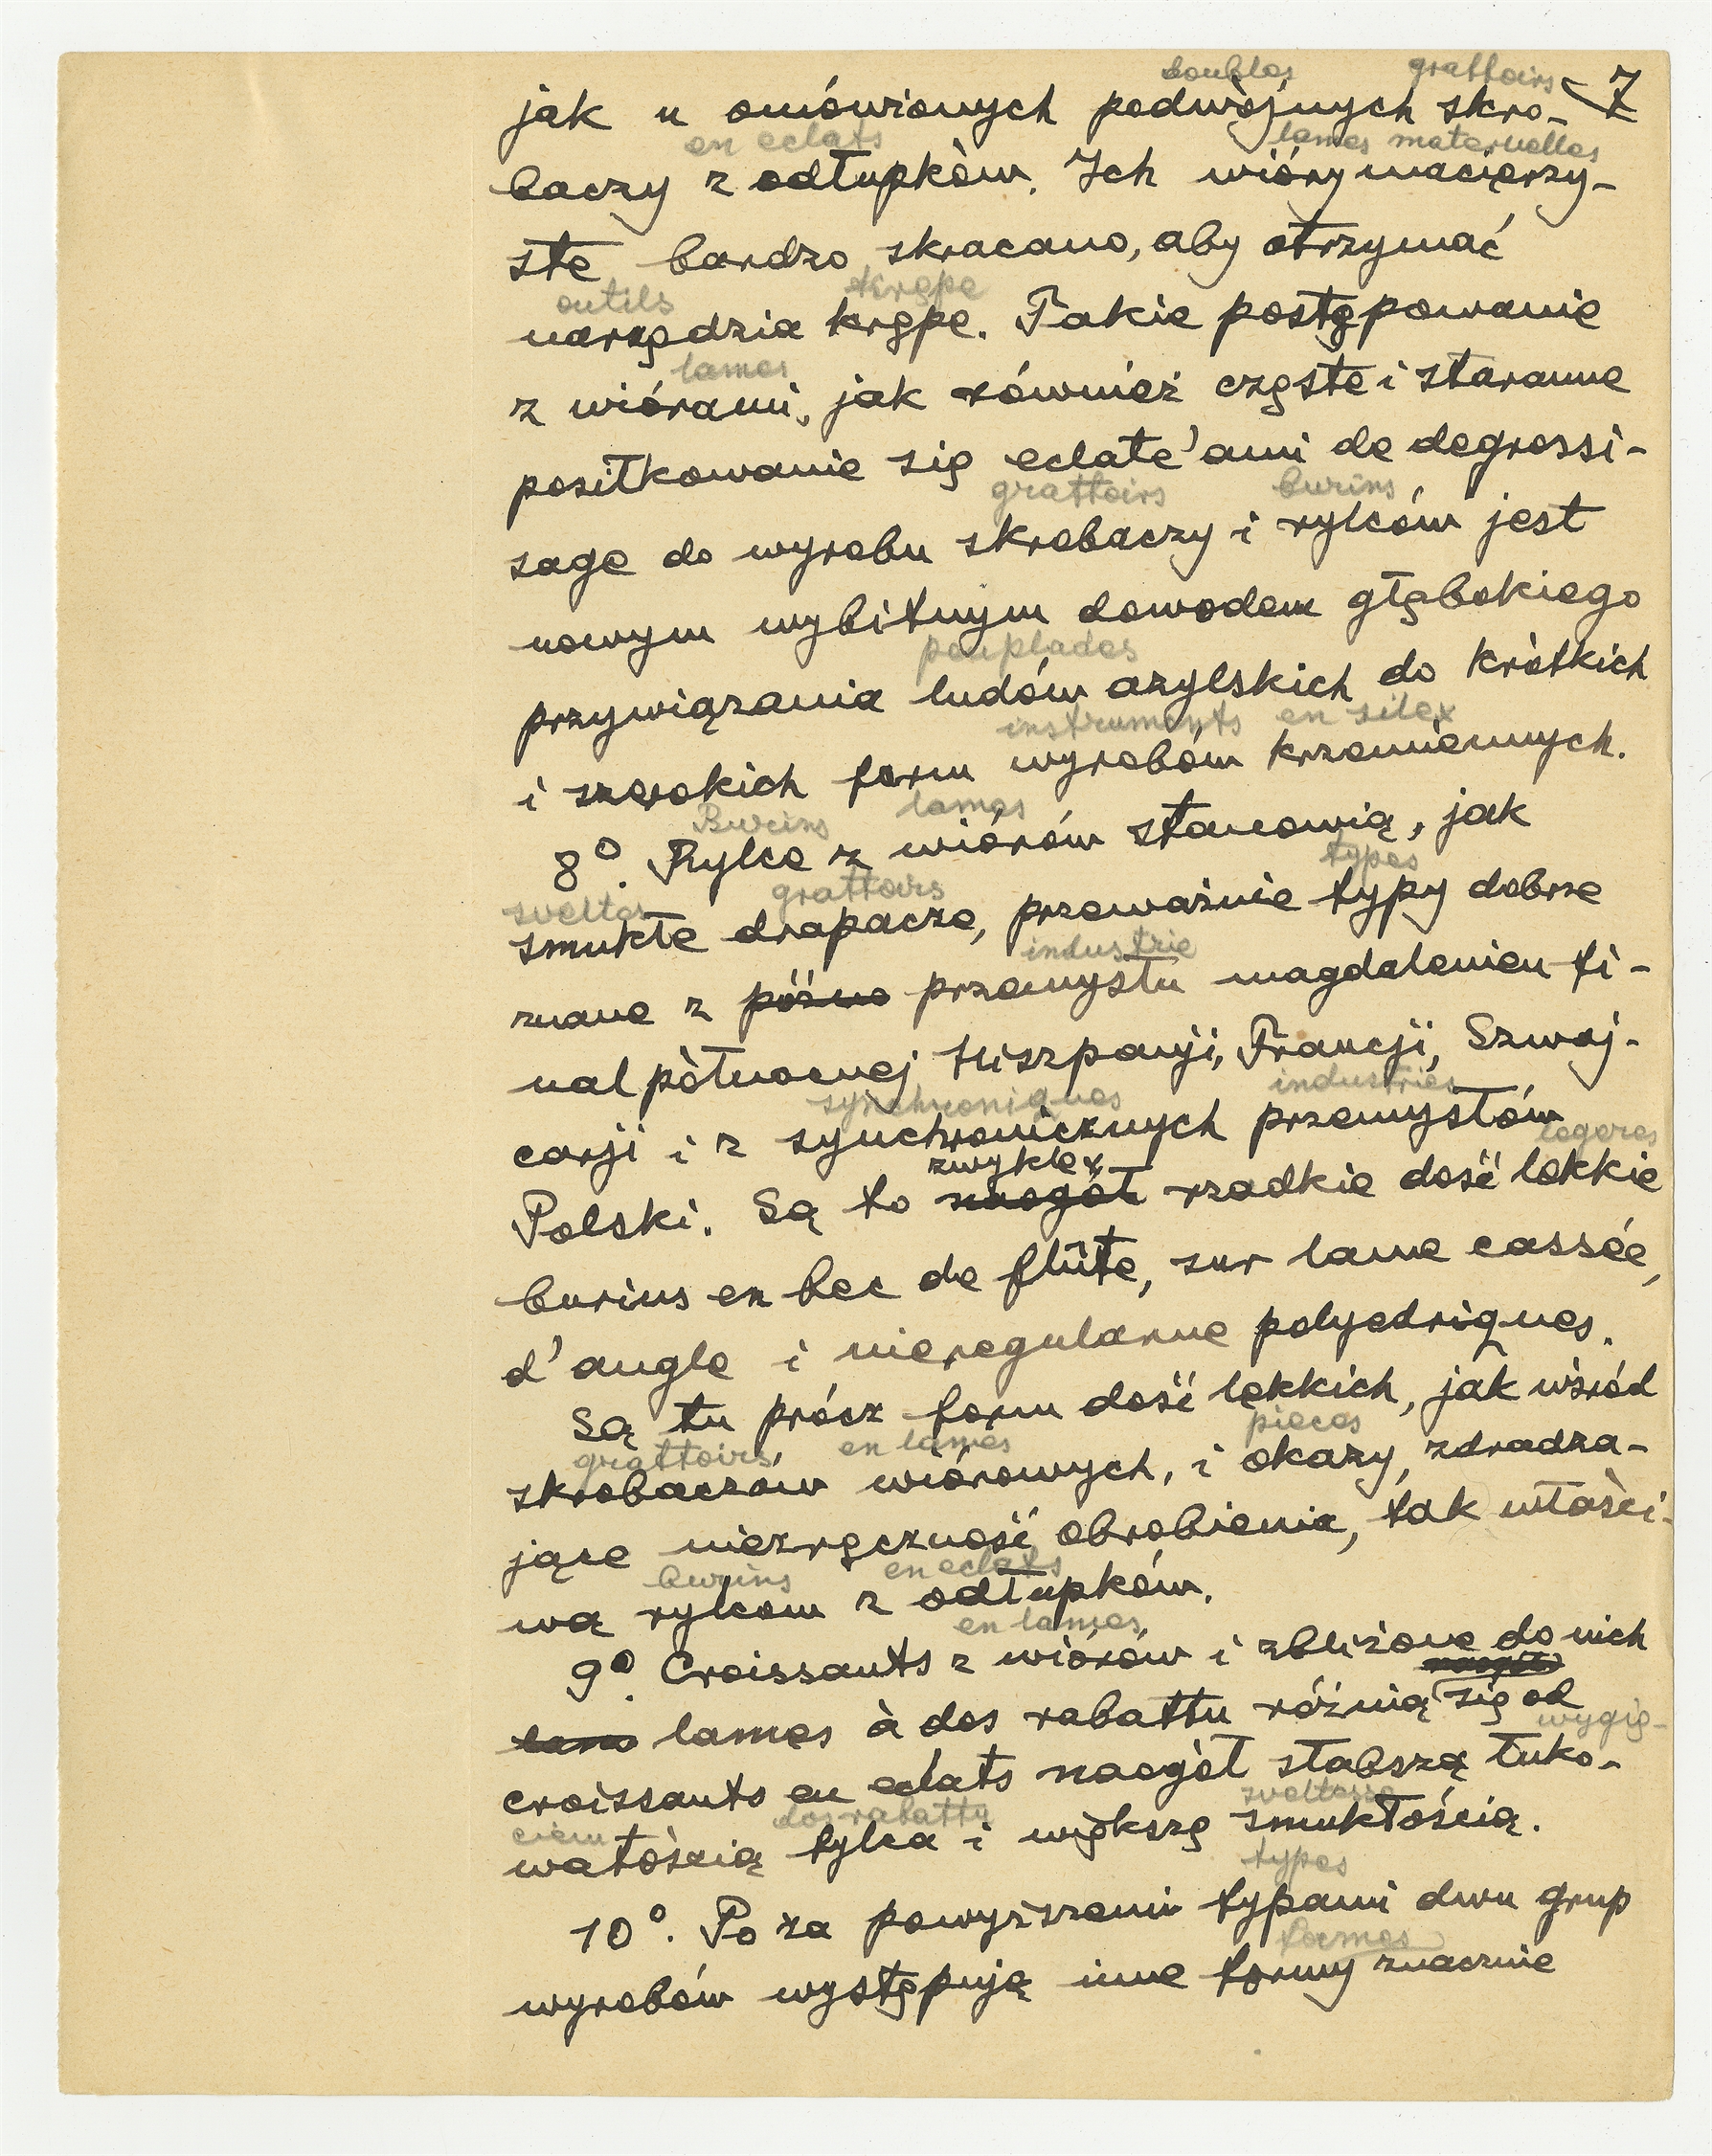 doubles grattoirs
jak u omówionych podwójnych skro- 7
en eclats lames maternelles
baczy z odłupków. Ich wióry macierzy-
ste bardzo skracano, aby otrzymać
outils krępe
narzędzia krępe. Takie postępowanie
lames
z wiórami, jak również częste i staranne
posiłkowanie się eclate'ami de degrossi-
grattoirs burins
sage do wyrobu skrobaczy i rylców jest
nowym wybitnym dowodem głębokiego
peuplades
przywiązania ludów azylskich do krótkich
instruments en silex
i szerokich form wyrobów krzemiennych.
Burins lames
8º. Rylce z wiórów stanowią, jak
sveltes grattoirs types
smukłe drapacze, przeważnie typy dobrze
industrie
znane z późno przemysłu magdalenien fi-
nal północnej Hiszpanji, Francji, Szwaj-
synchroniques industries
carji i z synchronicznych przemysłów
zwykle legeres
Polski. Są to naogół rzadkie dość lekkie
burins en bec de flûte, sur lame cassée,
d'angle i nieregularne polyedriques.
Są tu prócz form dość lekkich, jak wśród
grattoirs en lames pieces
skrobaczów wiórowych, i okazy, zdradza-
jące niezręczność obrobienia, tak właści-
burins en eclats
wą rylcom z odłupków.
en lames
9º. Croissants z wiórów i zbliżone do nich
naogół
lame lames à dos rabattu różnią się od
wygię-
croissants en eclats naogół słabszą łuko-
ciem dos rabattą sveltesse
watością tylca i większą smukłością.
types
10º. Po za powyższemi typami dwu grup
formes
wyrobów występują inne formy znacznie